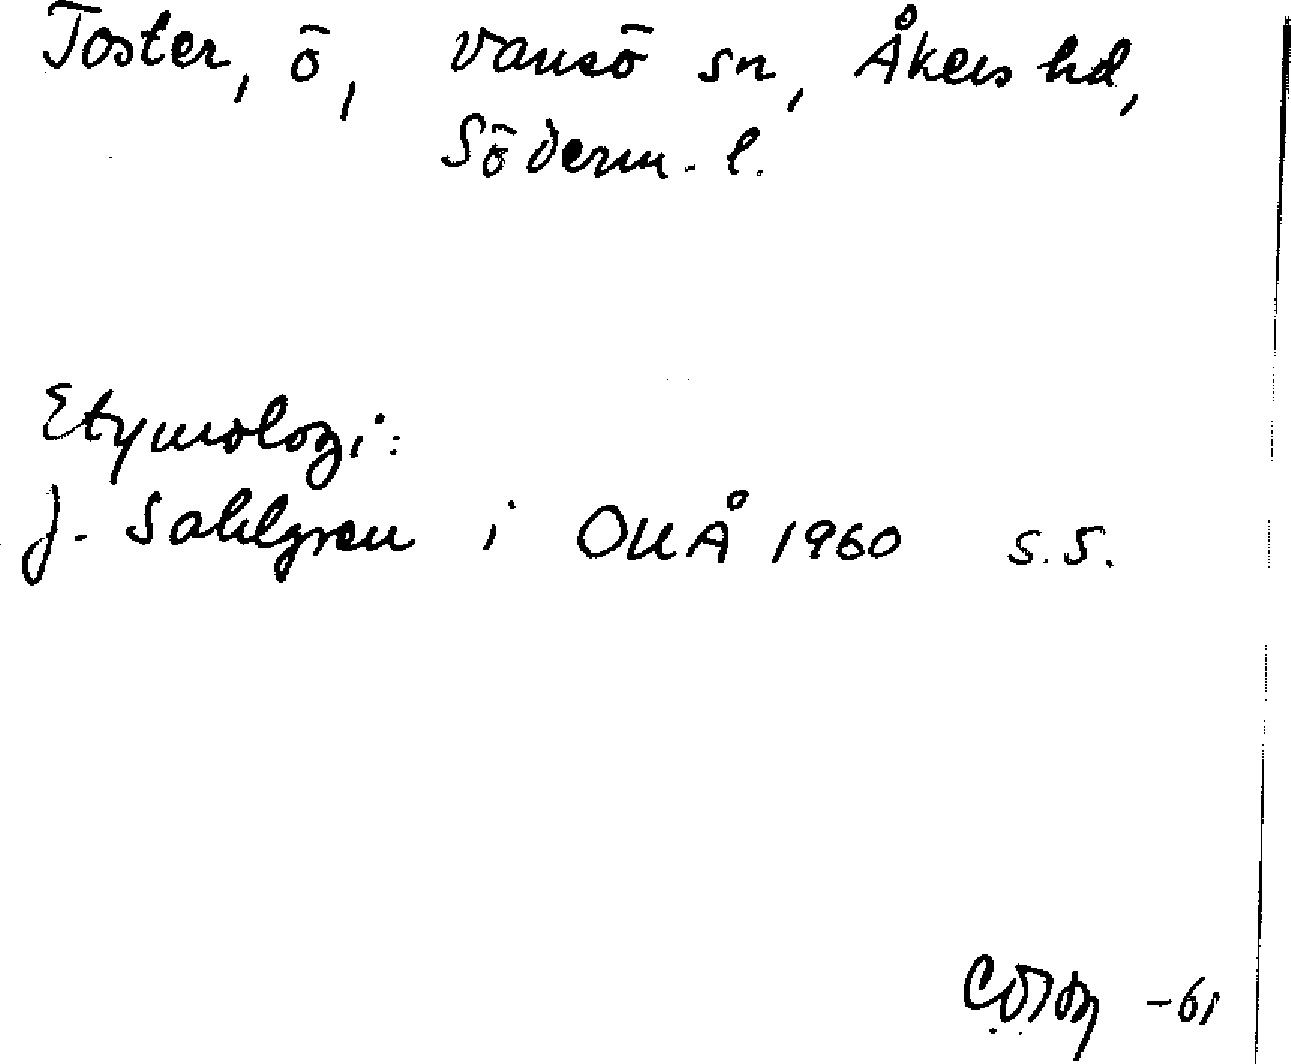 Toster, ö, Vansö sn, Åkers hd,
Söderm. l.
Etymologi:
J. Sahlgren i OUÅ 1960 s. 5.
-61